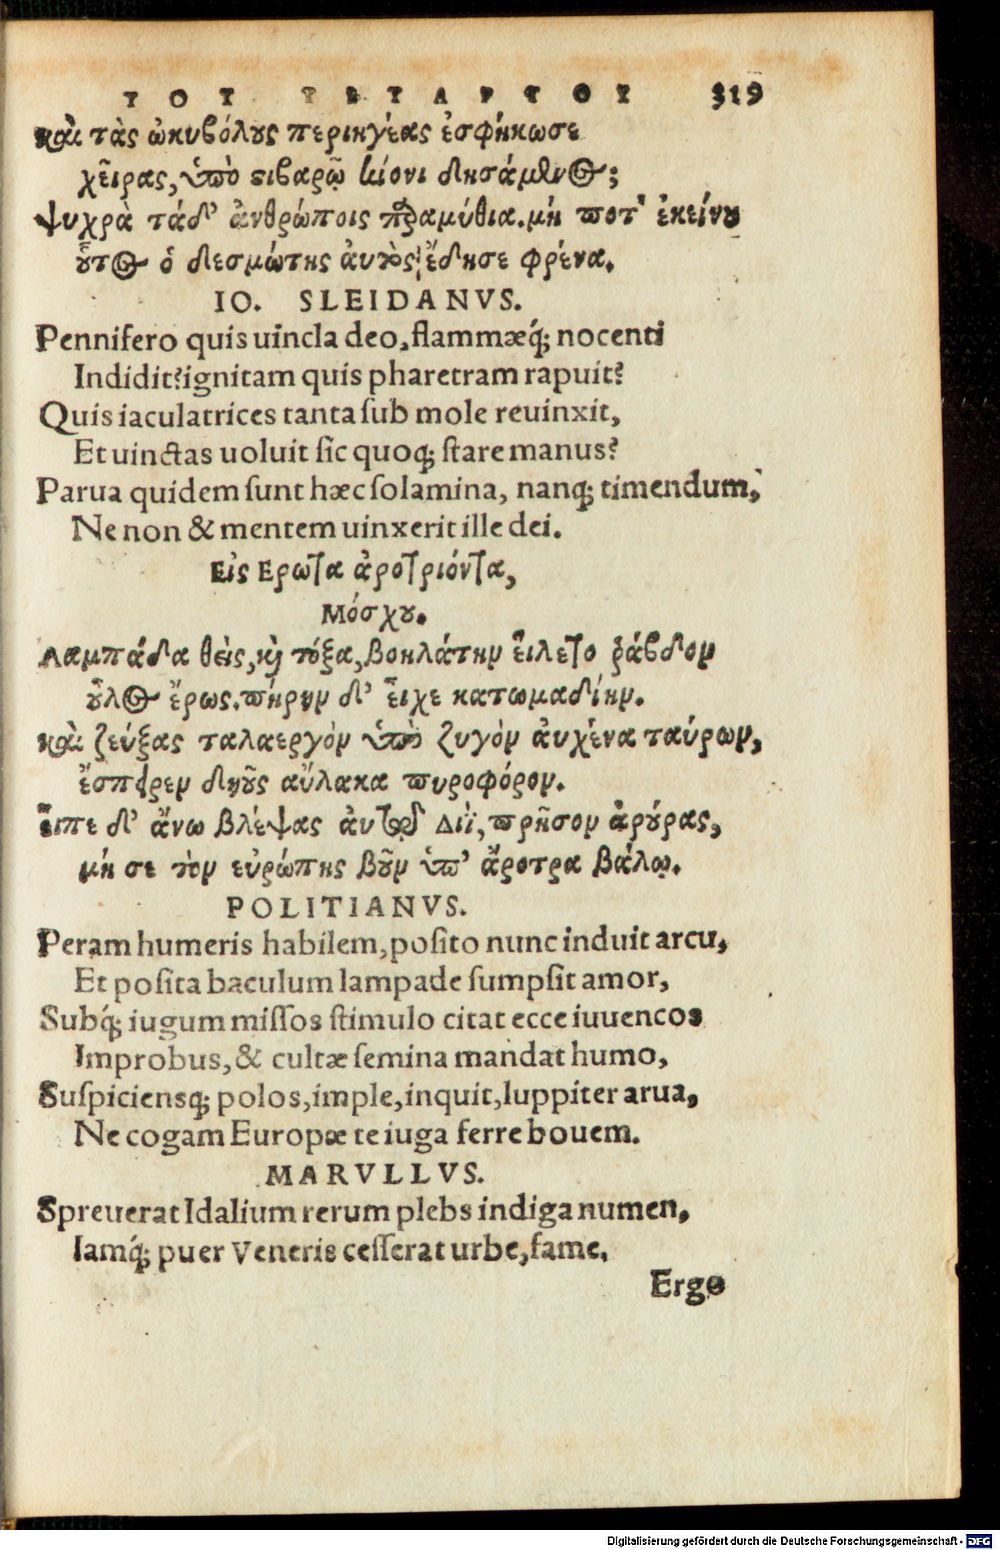 ΤΟΥ ΤΕΤΑΡΤΟΥ 319
καὶ τὰς ὠκυβόλους περιηγέας ἐσφήκωσε
χεῖρας, ὑπὸ στιβαρῷ κίονι δησάμενος;
ψυχρὰ τάδ' ἀνθρώποις παραμύθια. μή ποτ' ἐκείνου
οὗτος ὁ δεσμώτης αὐτὸς ἔδησε φρένα.
IO. SLEIDANVS.
Pennifero quis uincla deo, flammæq́; nocenti
Indidit? ignitam quis pharetram rapuit?
Quis iaculatrices tanta ſub mole reuinxit,
Et uinctas uoluit ſic quoq; ſtare manus?
Parua quidem ſunt hæc ſolamina, nanq; timendum,
Ne non & mentem uinxerit ille dei.
Εἰς Ερωτα ἀροτριόντα,
Μόσχου.
Λαμπάδα θεὶς, καὶ τόξα, βοηλάτην εἵλετο ῥάβδον
οὖλος ἔρως. πήρην δ' εἶχε κατωμαδίην.
καὶ ζεύξας ταλαεργὸν ὑπὸ ζυγὸν αὐχένα ταύρων,
ἔσπειρεν δηοῦς αὔλακα πυροφόρον.
εἶπε δ' ἄνω βλέψας αὐτῷ Διῒ, πρῆσον ἀρούρας,
μή σε τὸν εὐρώπης βοῦν ὑπ' ἄροτρα βάλω.
POLITIANVS.
Peram humeris habilem, poſito nunc induit arcu,
Et poſita baculum lampade ſumpſit amor,
Subq́; iugum miſſos ſtimulo citat ecce iuuencos
Improbus, & cultæ ſemina mandat humo,
Suſpicienſq; polos, imple, inquit, Iuppiter arua,
Ne cogam Europæ te iuga ferre bouem.
MARVLLVS.
Spreuerat Idalium rerum plebs indiga numen,
Iamq́; puer Veneris ceſſerat urbe, fame.
Ergo
Digitalisierung gefördert durch die Deutsche Forschungsgemeinschaft - DFG